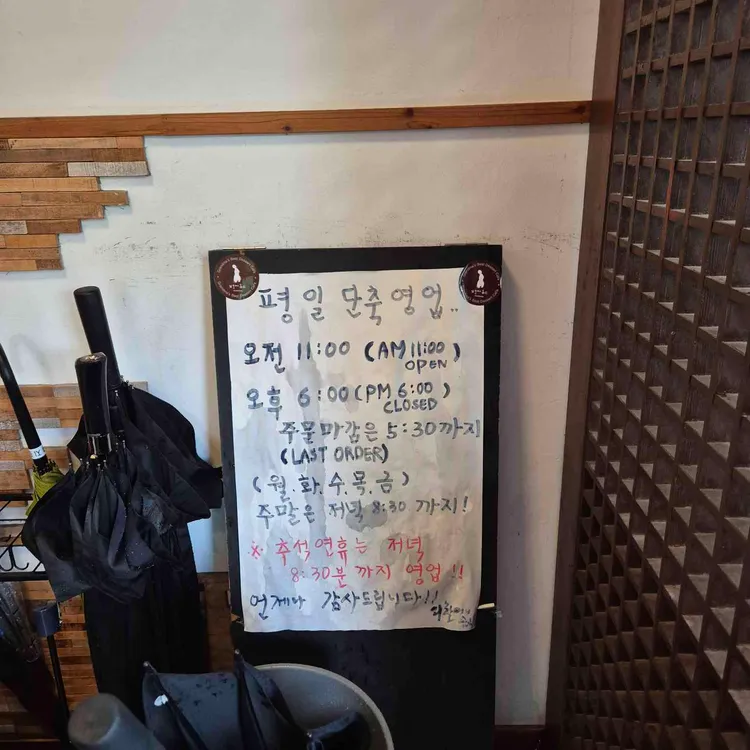 평일 단축영업..
오전 11:00 (AM 11:00)
OPEN
오후 6:00 (PM 6:00)
CLOSED
주문마감은 5:30까지
(LAST ORDER)
(월.화.수.목.금)
주말은 저녁 8:30 까지!
※ 추석연휴는 저녁
8:30분까지 영업!!
언제나 감사드립니다!!